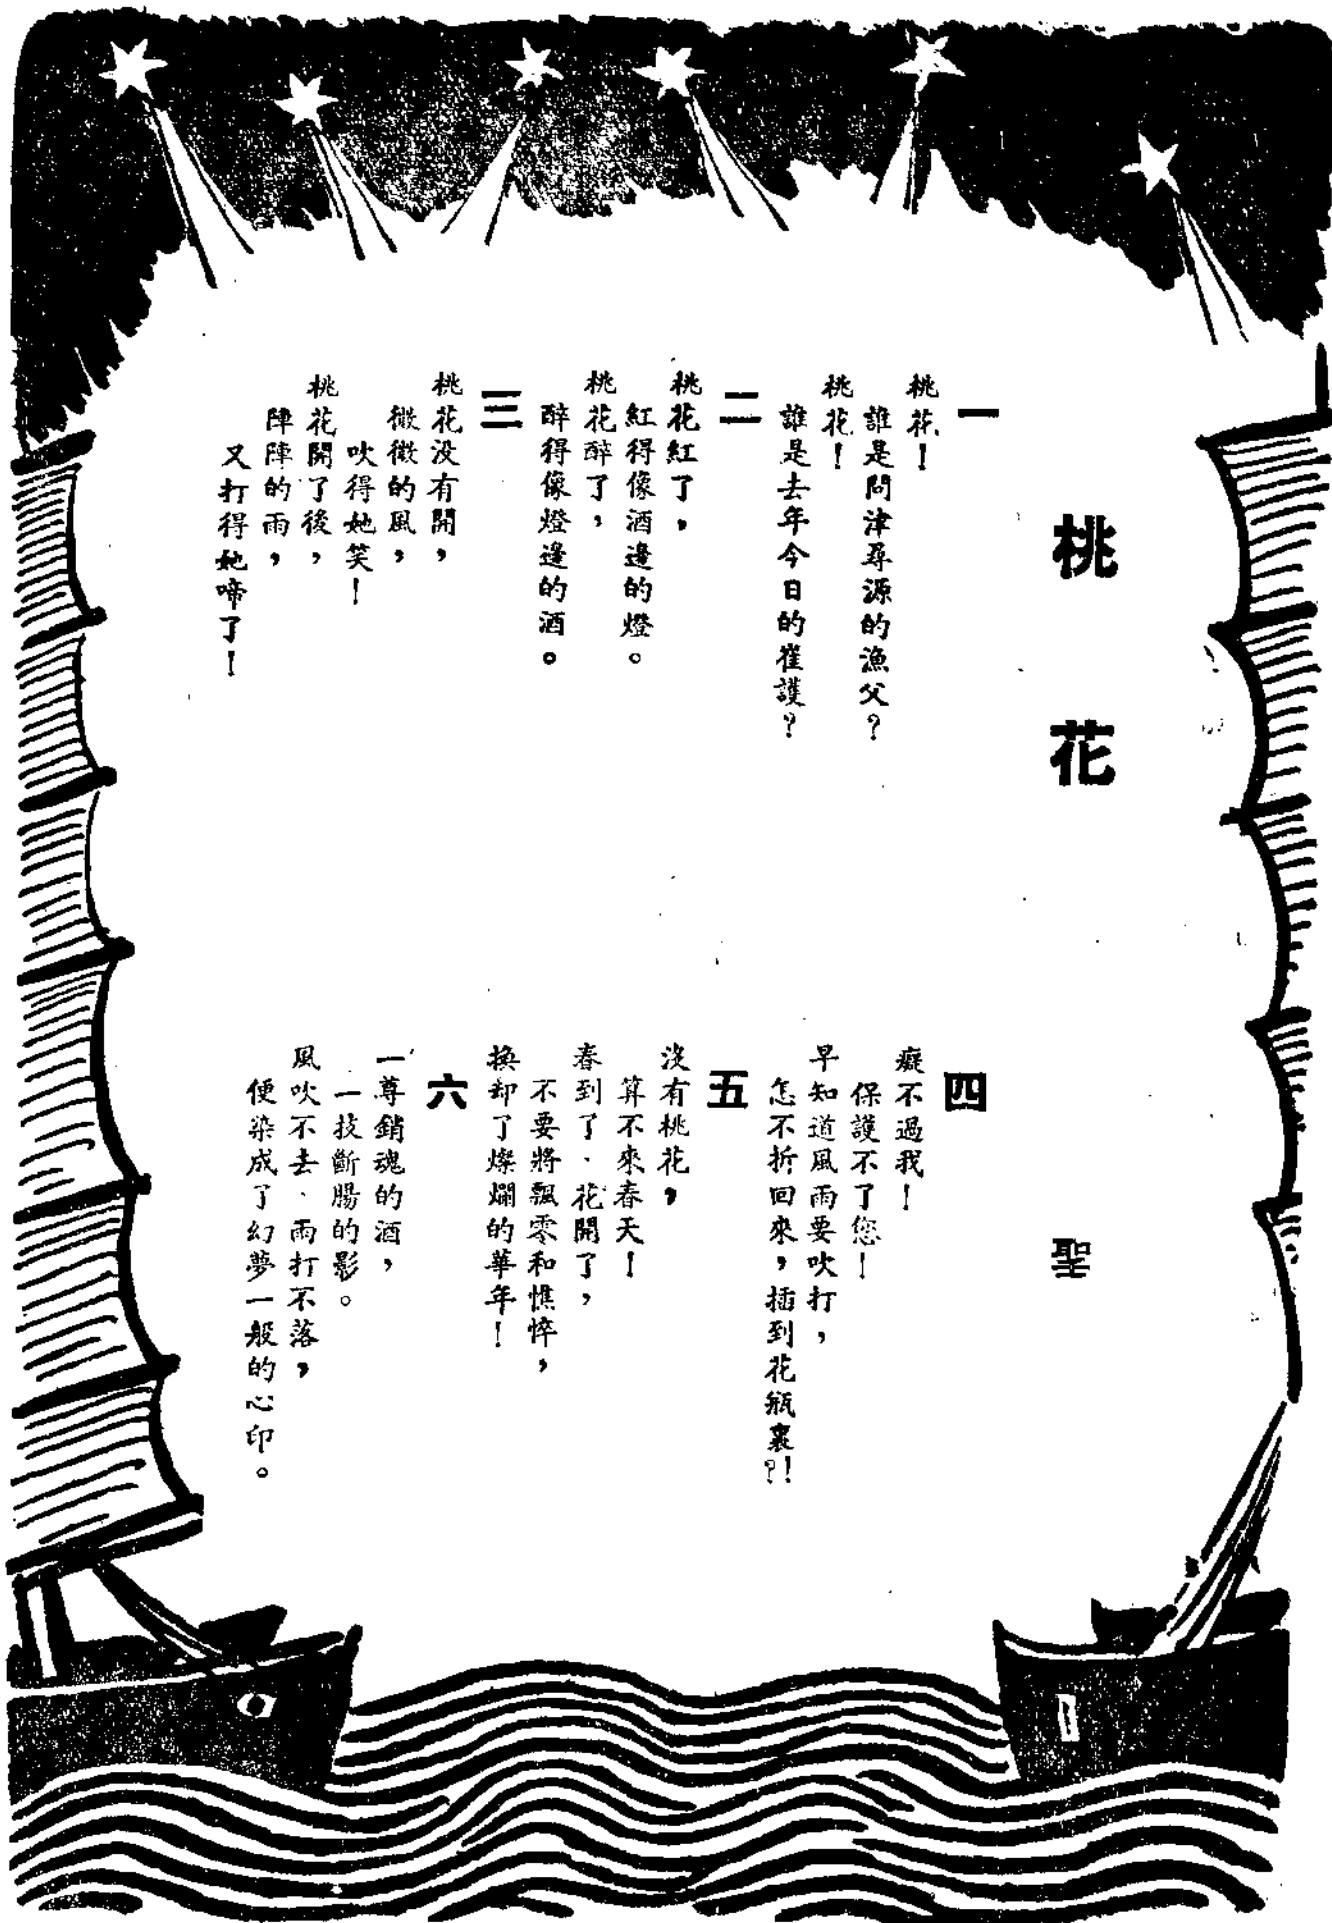 桃花
聖
一
桃花！
誰是問津尋源的漁父？
桃花！
誰是去年今日的崔護？
二
桃花紅了，
紅得像酒邊的燈。
桃花醉了，
醉得像燈邊的酒。
三
桃花没有開，
微微的風，
吹得她笑！
桃花開了後，
陣陣的雨，
又打得她啼了！
四
癡不過我！
保護不了您！
早知道風雨要吹打，
怎不折回來，插到花瓶裏？！
五
沒有桃花，
算不來春天！
春到了．花開了，
不要將飄零和憔悴，
換却了燦爛的華年！
六
一尊銷魂的酒，
一技斷腸的影。
風吹不去、雨打不落，
便染成了幻夢一般的心印。